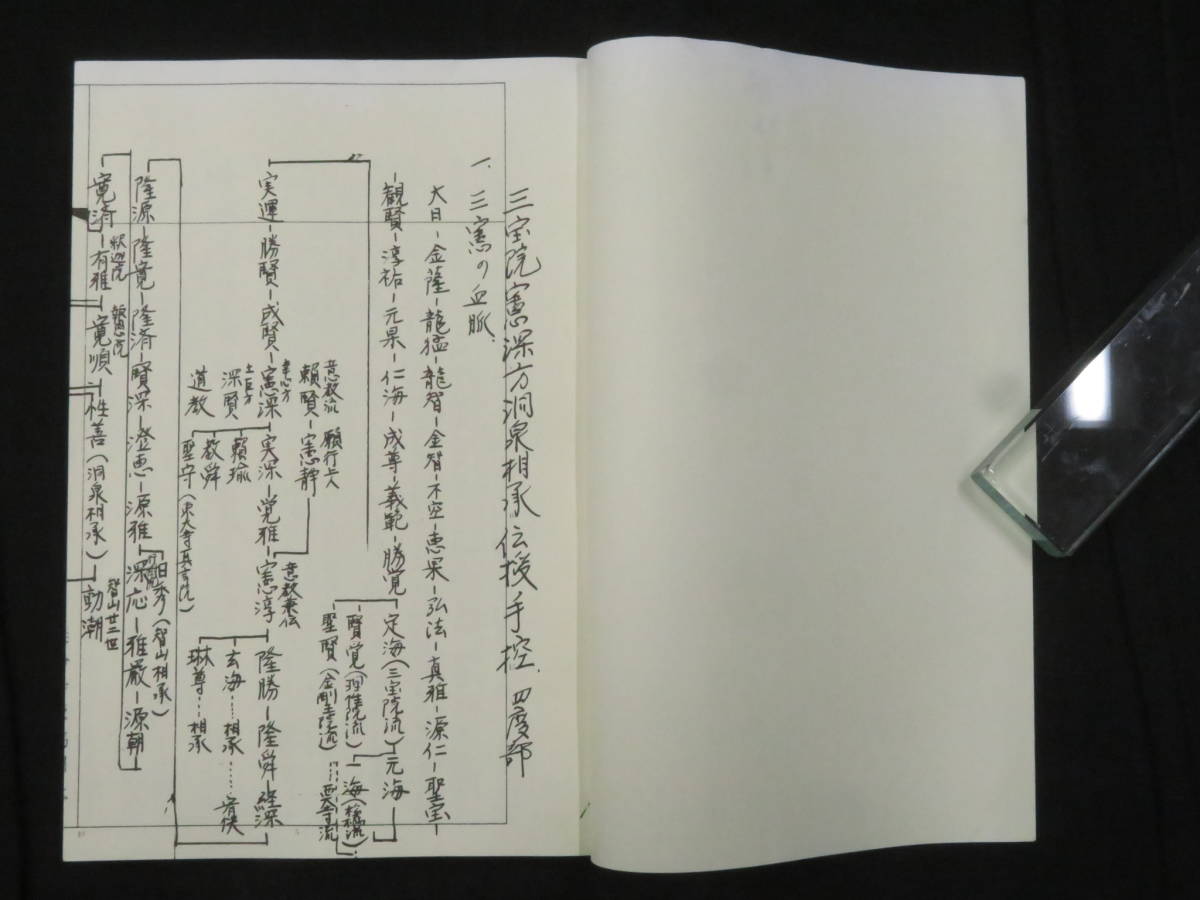 三宝院憲深方洞泉相承伝授手控 四度部
一、三憲の血脈
大日-金薩-龍猛-龍智-金智-不空-恵果-弘法-真雅-源仁-聖宝-
-観賢-淳祐-元果-仁海-成尊-義範-勝覚
定海(三宝院流)元海
賢覚(理性院流)
一海(松橋流)
聖賢(金剛王院流)
意教流 願行上人
頼賢-憲静
意教兼伝
幸心方
実運-勝賢-成賢-憲深-実深-覚雅-憲淳
隆勝-隆舜-経深
深賢
頼瑜
玄海……相承……宥快
道教
教舜
琳尊…相承
聖守(東大寺真言院)
日秀(智山相承)
隆源-隆寛-隆済-賢深-澄恵-源雅
深応-雅厳-源朝
釈迦院 報恩院
智山廿二世
寛済-有雅-寛順-性善(洞泉相承)-動潮